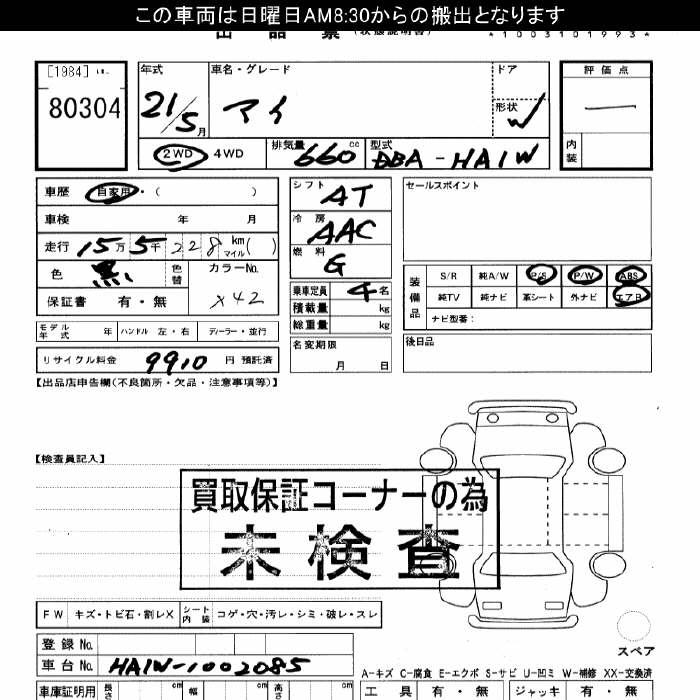 この車両は日曜日AM8:30からの搬出となります
出品票 (状態説明書) *1003101993*
[1984] 年式 車名・グレード ドア 評価点
80304 21/5月 マイ 形状 W —
② 2WD 4WD 排気量 660cc 型式 DBA-HA1W 内装
車歴 自家用・( ) シフト AT セールスポイント
車検 年 月 冷房 AAC
走行 15万5千228km マイル( ) 燃料 G
色 黒 色替 カラーNo. X42 乗車定員 4名 装備品 S/R 純A/W P/S P/W ABS
保証書 有・無 積載量 kg 純TV 純ナビ 革シート 外ナビ エアB
モデル年式 年 ハンドル 左・右 ディーラー・並行 総重量 kg ナビ型番:
リサイクル料金 9910 円 預託済 名変期限 月 日 後日品
【出品店申告欄(不良箇所・欠品・注意事項等)】
【検査員記入】
買取保証コーナーの為
未検査
FW キズ・トビ石・割レX シート内装 コゲ・穴・汚レ・シミ・破レ・スレ
登録No.
スペア
車台No. HA1W-1002085
A-キズ C-腐食 E-エクボ S-サビ U-凹ミ W-補修 XX-交換済
車庫証明用 長さ cm 幅 cm 高さ cm 工具 有・無 ジャッキ 有・無